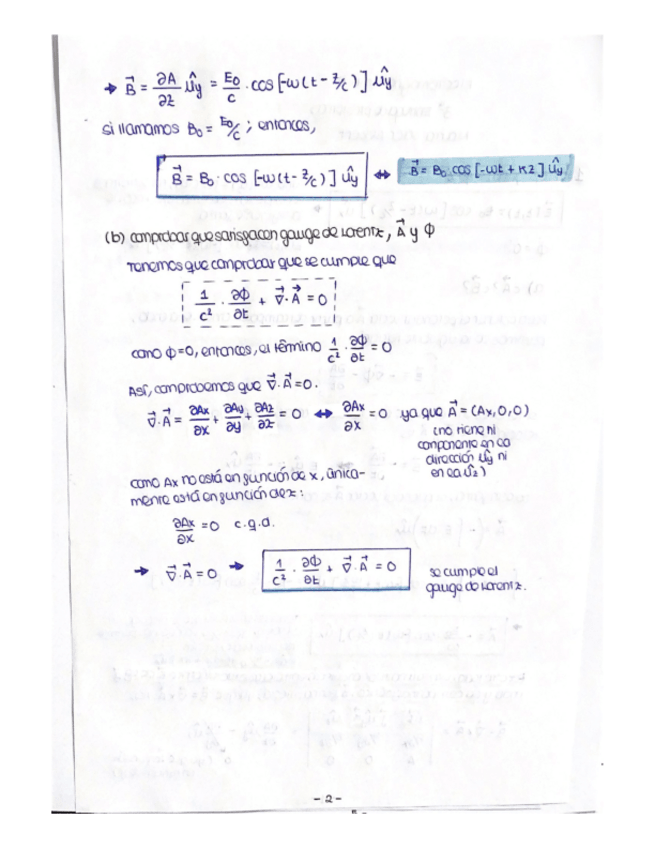 → B⃗ = ∂A/∂z ûy = E₀/c · cos [-ω(t - z/c)] ûy
si llamamos B₀ = E₀/c ; entonces,
B⃗ = B₀ · cos [-ω(t - z/c)] ûy ↔ B⃗ = B₀ cos [-ωt + kz] ûy
(b) comprobar que satisfacen gauge de Lorentz, A⃗ y Φ
Tenemos que comprobar que se cumple que
1/c² · ∂Φ/∂t + ∇⃗·A⃗ = 0
como Φ=0, entonces, el término 1/c² · ∂Φ/∂t = 0
Así, comprobemos que ∇⃗·A⃗ = 0.
∇⃗·A⃗ = ∂Ax/∂x + ∂Ay/∂y + ∂Az/∂z = 0 ↔ ∂Ax/∂x = 0 ya que A⃗ = (Ax,0,0)
(no tiene ni
componente en la
dirección ûy ni
en la ûz)
como Ax no está en función de x, única-
mente está en función de z:
∂Ax/∂x = 0 c.q.d.
→ ∇⃗·A⃗ = 0 → 1/c² · ∂Φ/∂t + ∇⃗·A⃗ = 0
se cumple el
gauge de Lorentz.
- 2 -